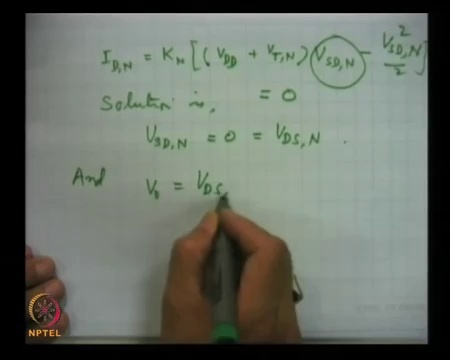 I_{D,N} = K_N [(V_{DD} + V_{T,N}) V_{SD,N} - V_{SD,N}^2 / 2]
Solution is, = 0
V_{SD,N} = 0 = V_{DS,N}.
And V_0 = V_{DS,
NPTEL